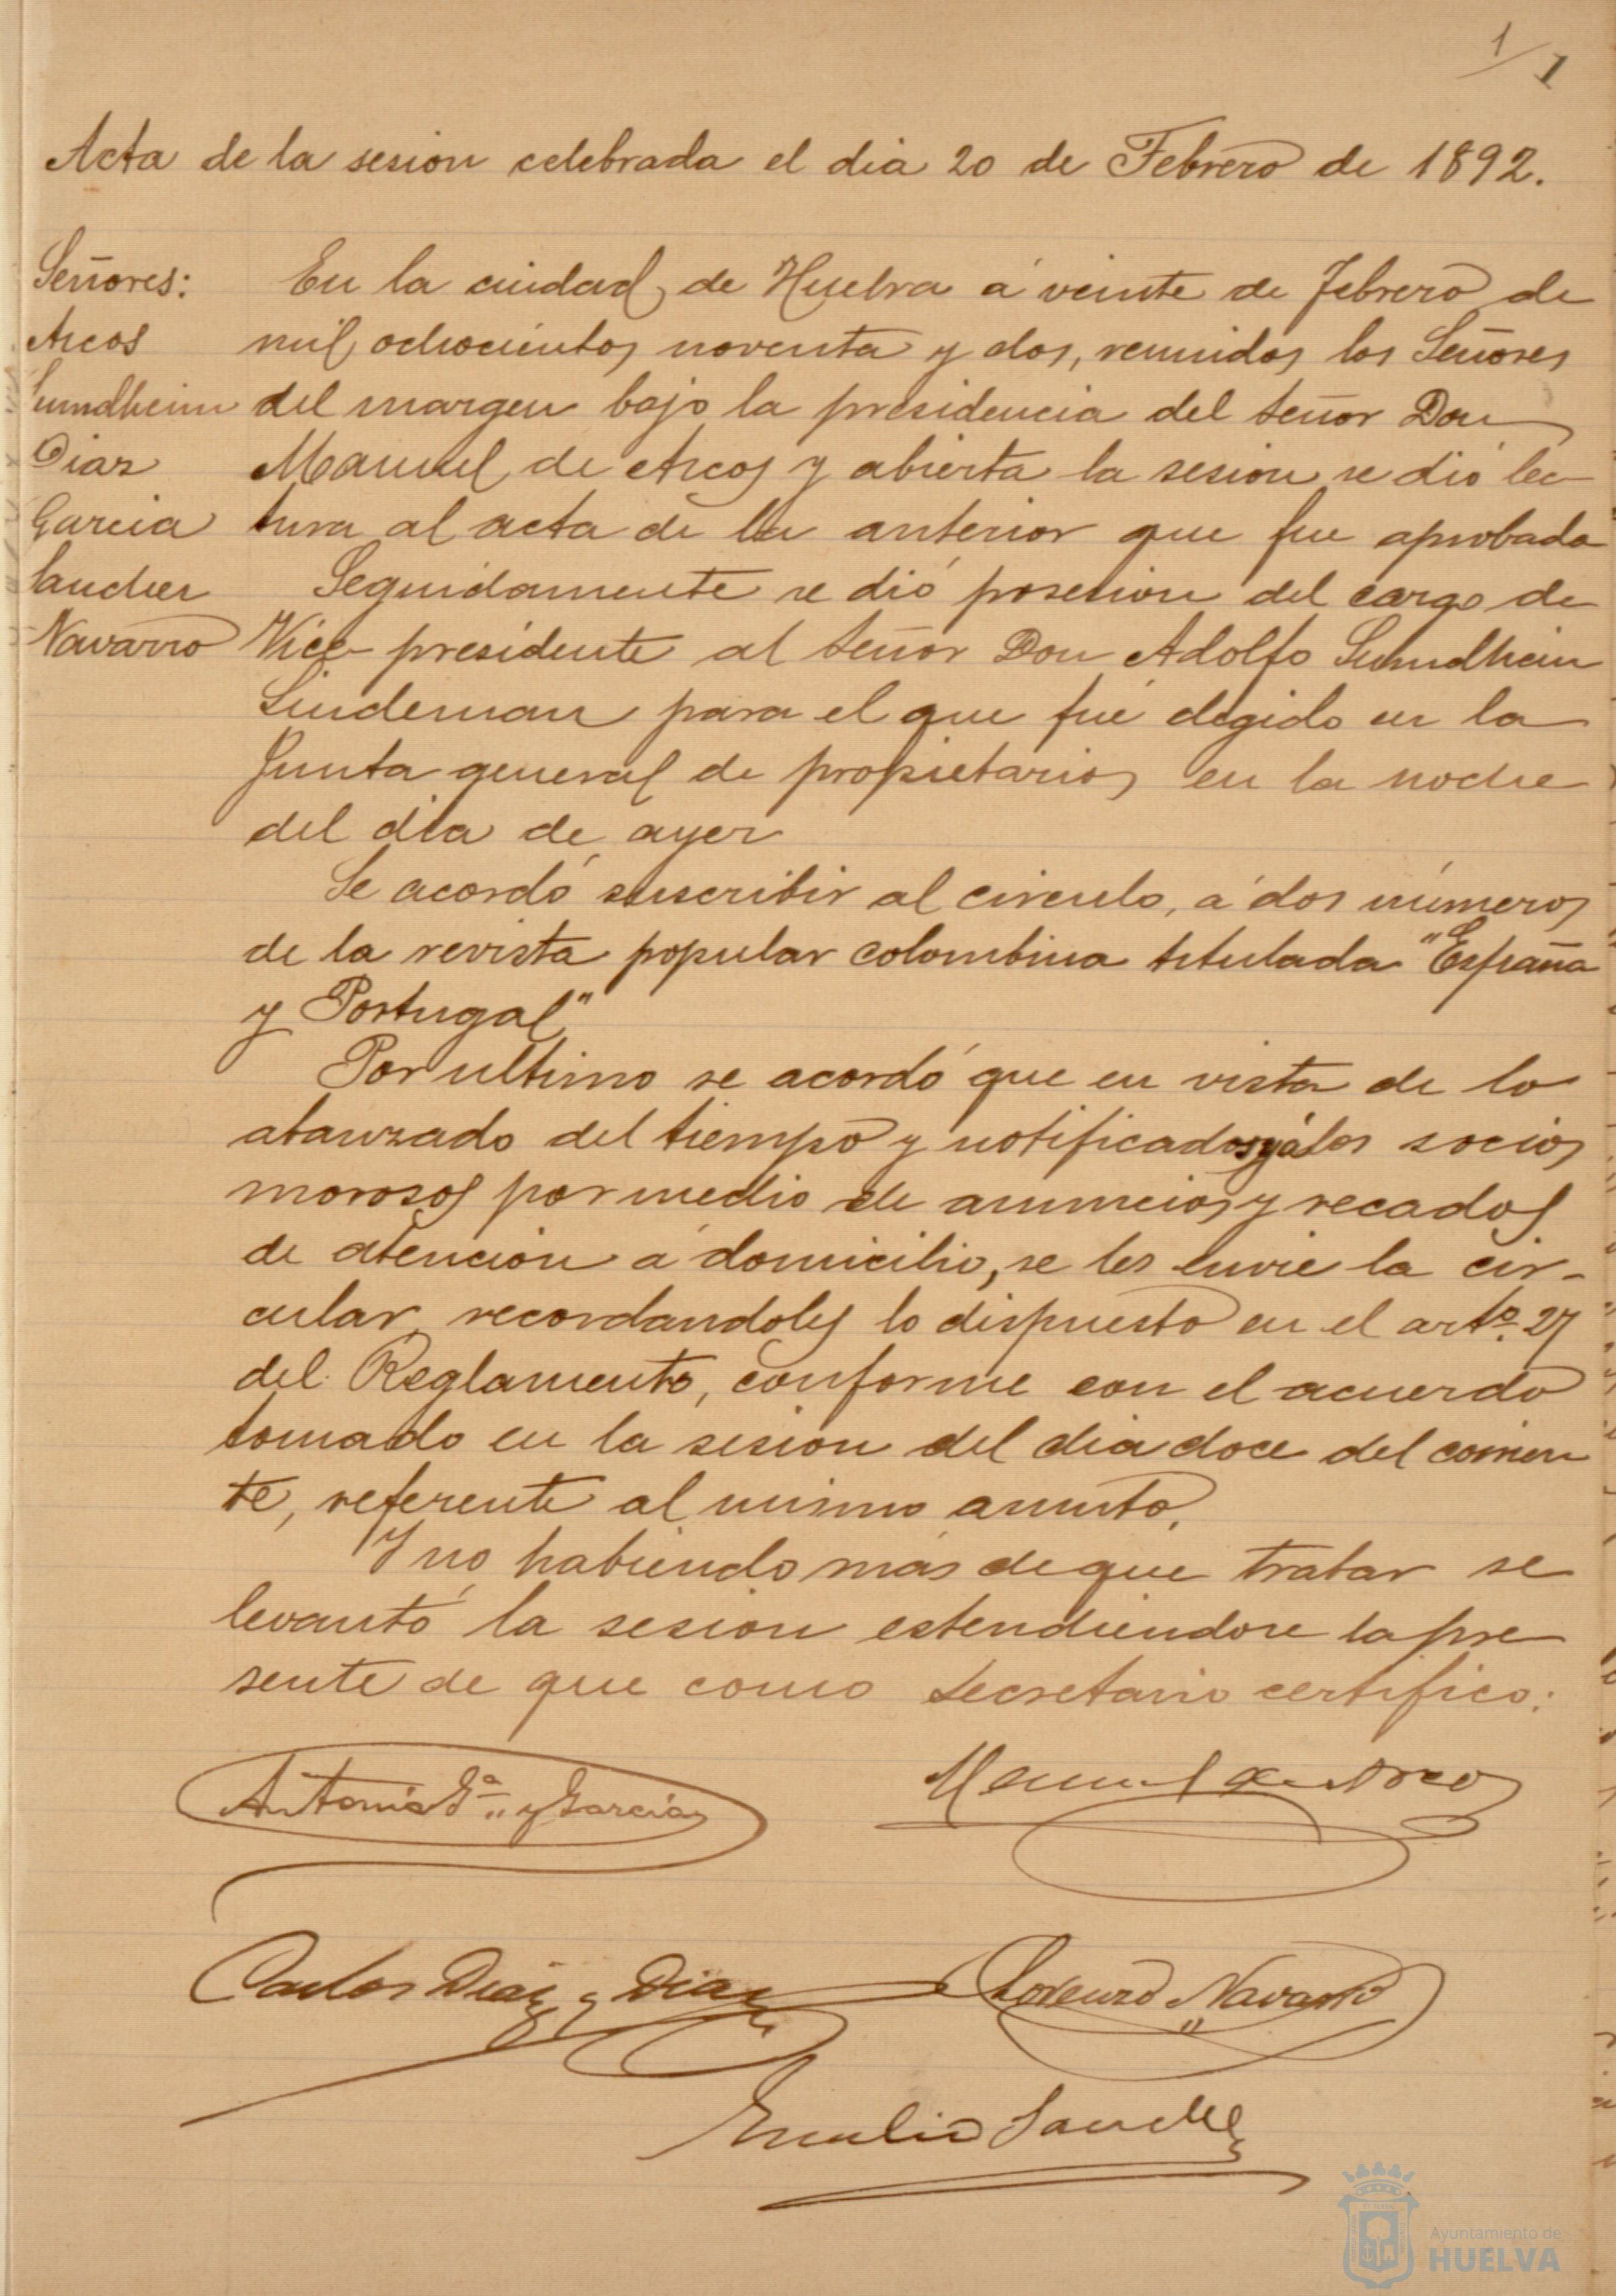 1/1
Acta de la sesion celebrada el dia 20 de Febrero de 1892.
Señores:
Arcos
Sundheim
Diaz
Garcia
Sanchez
Navarro
En la ciudad de Huelva á veinte de Febrero de
mil ochocientos noventa y dos, reunidos los Señores
del margen bajo la presidencia del Señor Don
Manuel de Arcos y abierta la sesion se dió lec-
tura al acta de la anterior que fue aprobada
Seguidamente se dió posesion del cargo de
Vice-presidente al Señor Don Adolfo Sundheim
Lindeman para el que fué elegido en la
Junta general de propietarios en la noche
del dia de ayer
Se acordó suscribir al circulo, á dos números
de la revista popular colombina titulada "España
y Portugal"
Por ultimo se acordó que en vista de lo
abanzado del tiempo y notificados yá los socios
morosos por medio de anuncios y recados
de atencion á domicilio, se les envie la cir-
cular, recordandoles lo dispuesto en el artº. 27
del Reglamento, conforme con el acuerdo
tomado en la sesion del dia doce del corrien
te, referente al mismo asunto.
Y no habiendo más de que tratar se
levantó la sesion estendiendose la pre
sente de que como Secretario certifico:
Antonio Gª y Garcia
Manuel de Arcos
Carlos Diaz y Diaz
Lorenzo Navarro
Emilio Sanchez
Ayuntamiento de
HUELVA